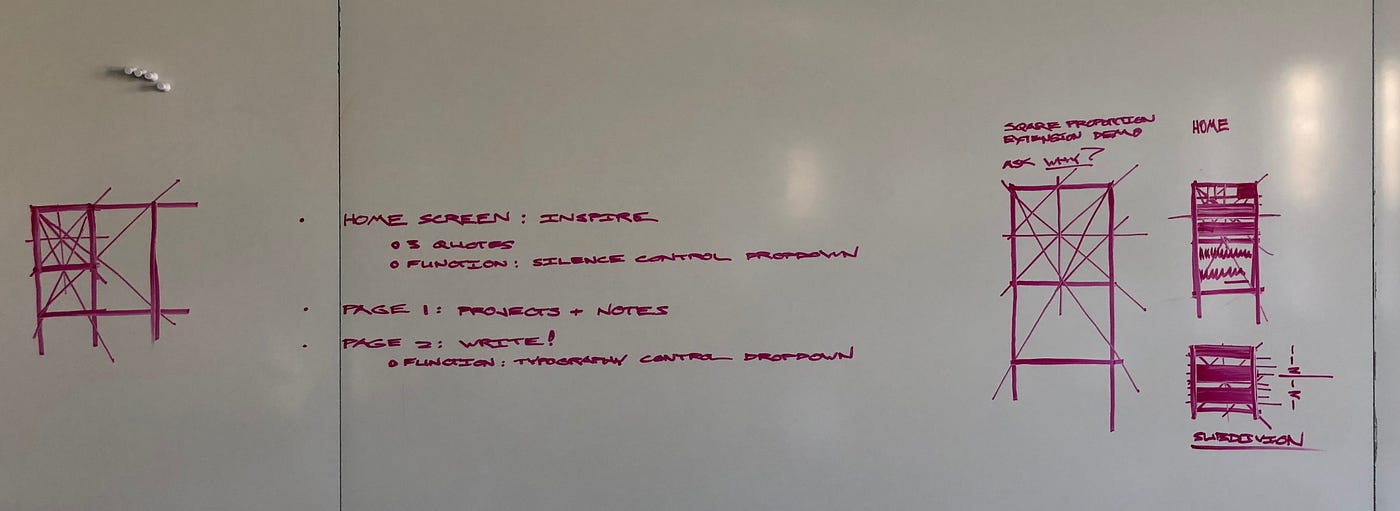 • HOME SCREEN: INSPIRE
o 3 QUOTES
o FUNCTION: SILENCE CONTROL DROPDOWN
• PAGE 1: PROJECTS + NOTES
• PAGE 2: WRITE!
o FUNCTION: TYPOGRAPHY CONTROL DROPDOWN
SQARE PROPORTION
EXTENSION DEMO
ASK WHY?
HOME
SUBDIVISION